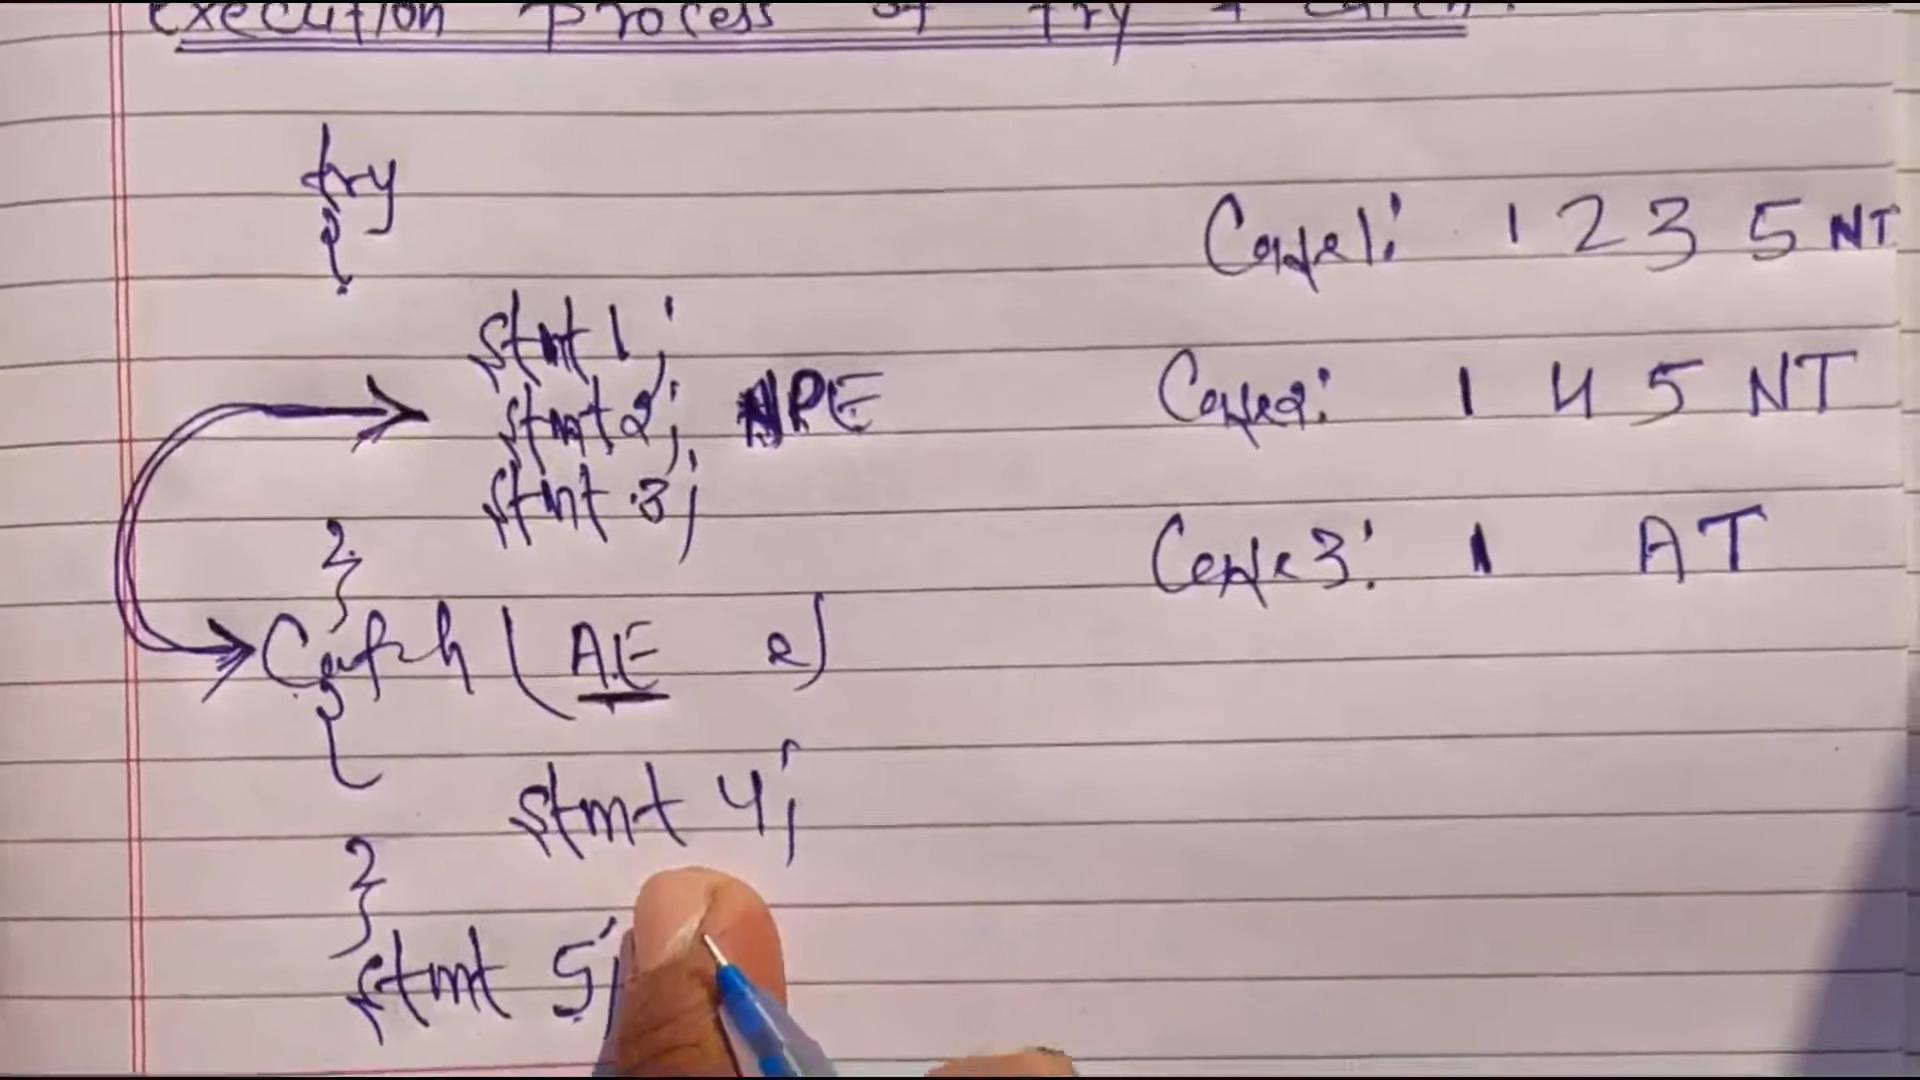 execution process of try & catch:
try
{
stmt 1;
stmt 2; NPE
stmt 3;
}
Catch (AE e)
{
stmt 4;
}
stmt 5;
Case1: 1 2 3 5 NT
Case2: 1 4 5 NT
Case3: 1 AT